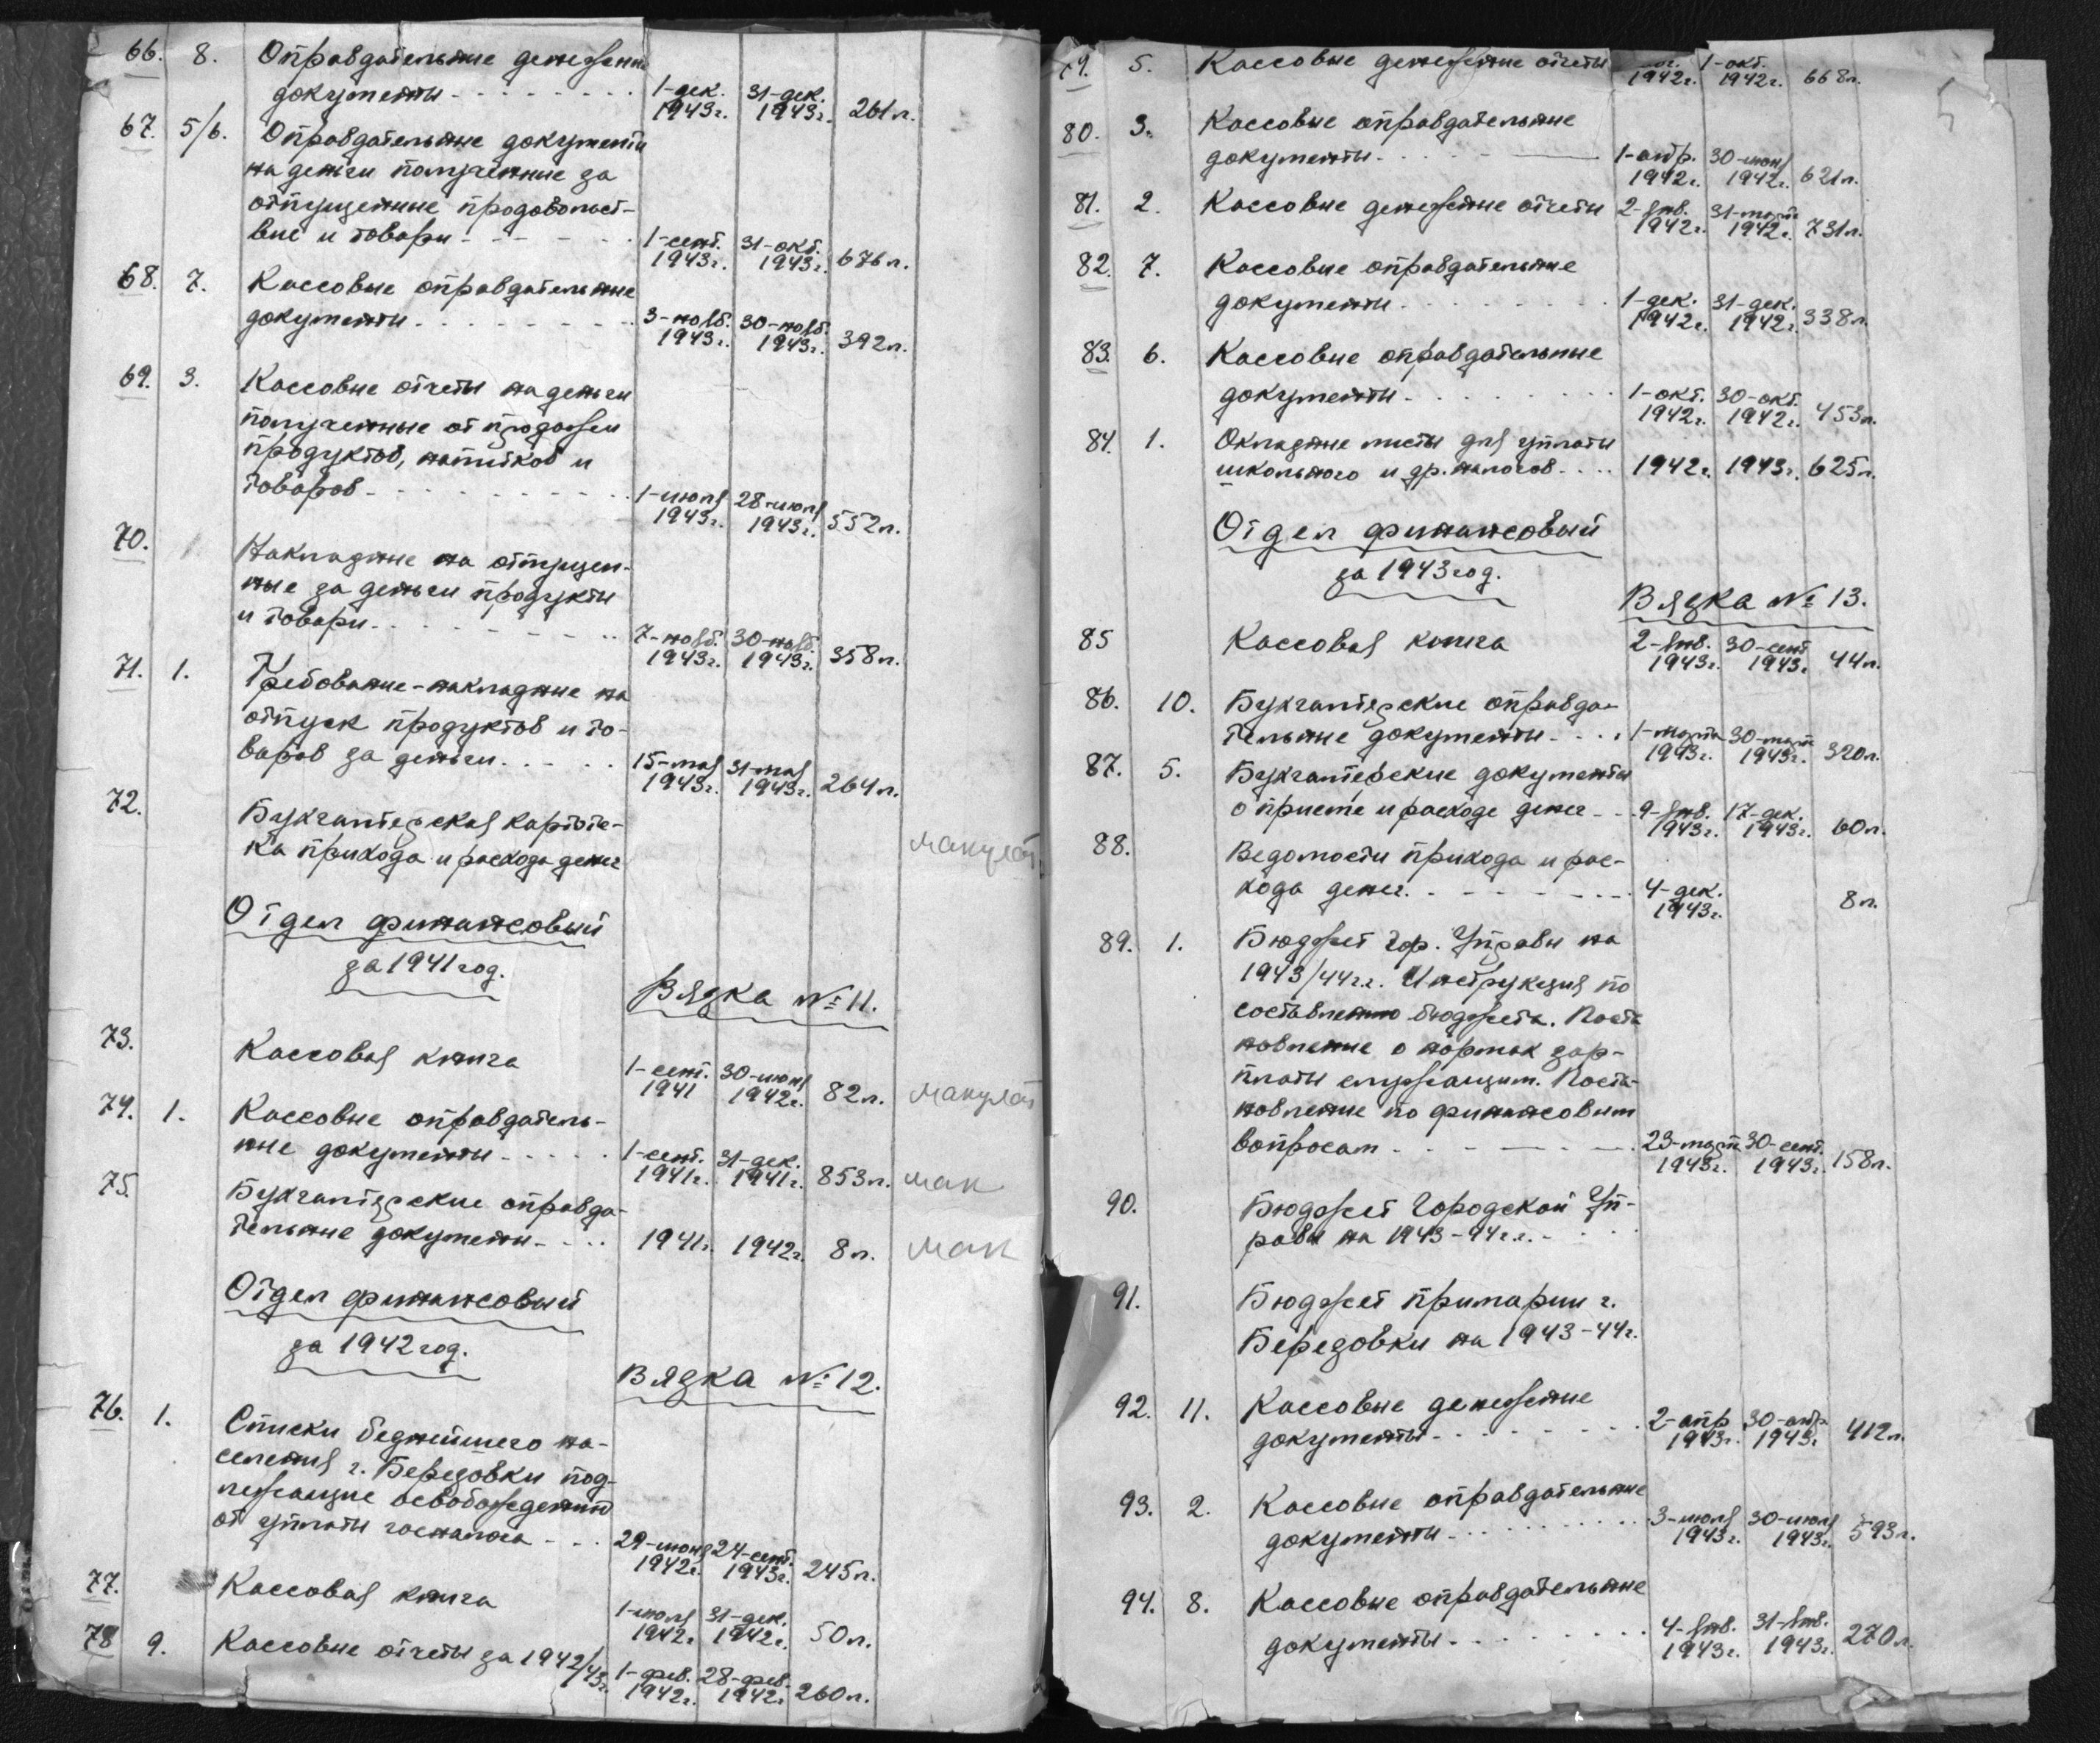 66. 8. Оправдательные денежные
документы - - - - - - - - 1-дек. 1943г. 31-дек. 1943г. 261л.
67. 5/6. Оправдательные документы
на деньги полученные за
отпущенные продовольст-
вие и товары - - - - - 1-сент. 1943г. 31-окт. 1943г. 676л.
68. 7. Кассовые оправдательные
документы - - - - - - - 3-нояб. 1943г. 30-нояб. 1943г. 392л.
69. 3. Кассовые отчеты на деньги
полученные от продажи
продуктов, напитков и
товаров - - - - - - - - 1-июля 1943г. 28-июля 1943г. 552л.
70. Накладные на отпущен-
ные за деньги продукты
и товары - - - - - - - 7-нояб. 1943г. 30-нояб. 1943г. 358л.
71. 1. Требование-накладные на
отпуск продуктов и то-
варов за деньги - - - - 15-мая 1943г. 31-мая 1943г. 264л.
72. Бухгалтерская картоте-
ка прихода и расхода денег макулат
Отдел финансовый
за 1941 год.
Вязка № 11.
73. Кассовая книга 1-сент. 1941 30-июня 1942г. 82л. макулат
74. 1. Кассовые оправдатель-
ные документы - - - - - 1-сент. 1941г. 31-дек. 1941г. 853л. мак
75. Бухгалтерские оправда-
тельные документы - - - 1941г. 1942г. 8л. мак
Отдел финансовый
за 1942 год.
Вязка № 12.
76. 1. Списки беднейшего на-
селения г. Березовки под-
лежащие освобождению
от уплаты госналога - - - 29-июня 1942г. 24-сент. 1943г. 245л.
77. Кассовая книга 1-июля 1942г. 31-дек. 1942г. 50л.
78 9. Кассовые отчеты за 1942/43г. 1-фев. 1942г. 28-фев. 1942г. 260л.
5
79. 5. Кассовые денежные отчеты 1942г. 1-окт. 1942г. 668л.
80. 3. Кассовые оправдательные
документы - - - - 1-апр. 1942г. 30-июня 1942г. 621л.
81. 2. Кассовые денежные отчеты 2-янв. 1942г. 31-марта 1942г. 731л.
82. 7. Кассовые оправдательные
документы - - - - - - - 1-дек. 1942г. 31-дек. 1942г. 338л.
83. 6. Кассовые оправдательные
документы - - - - - - - 1-окт. 1942г. 30-окт. 1942г. 453л.
84. 1. Окладные листы для уплаты
школьного и др. налогов - - - 1942г. 1943г. 625л.
Отдел финансовый
за 1943 год.
Вязка № 13.
85 Кассовая книга 2-янв. 1943г. 30-сент 1943г. 44л.
86. 10. Бухгалтерские оправда-
тельные документы - - - 1-марта 1943г. 30-марта 1943г. 320л.
87. 5. Бухгалтерские документы
о приеме и расходе денег - - 9-янв. 1943г. 17-дек. 1943г. 60л.
88. Ведомости прихода и рас-
хода денег - - - - - - - 4-дек. 1943г. 8л.
89. 1. Бюджет гор. Управы на
1943/44г.г. Инструкция по
составлению бюджета. Поста
новление о нормах зар-
платы служащим. Поста-
новление по финансовым
вопросам - - - - - - - 23-марта 1943г. 30-сент. 1943г. 158л.
90. Бюджет Городской Уп-
равы на 1943-44г.г. - - -
91. Бюджет примарии г.
Березовки на 1943-44г.
92. 11. Кассовые денежные
документы - - - - - - - 2-апр 1943г. 30-апр. 1943г. 412л.
93. 2. Кассовые оправдательные
документы - - - - - - - 3-июля 1943г. 30-июля 1943г. 593л.
94. 8. Кассовые оправдательные
документы - - - - - - - 4-янв. 1943г. 31-янв. 1943г. 270л.